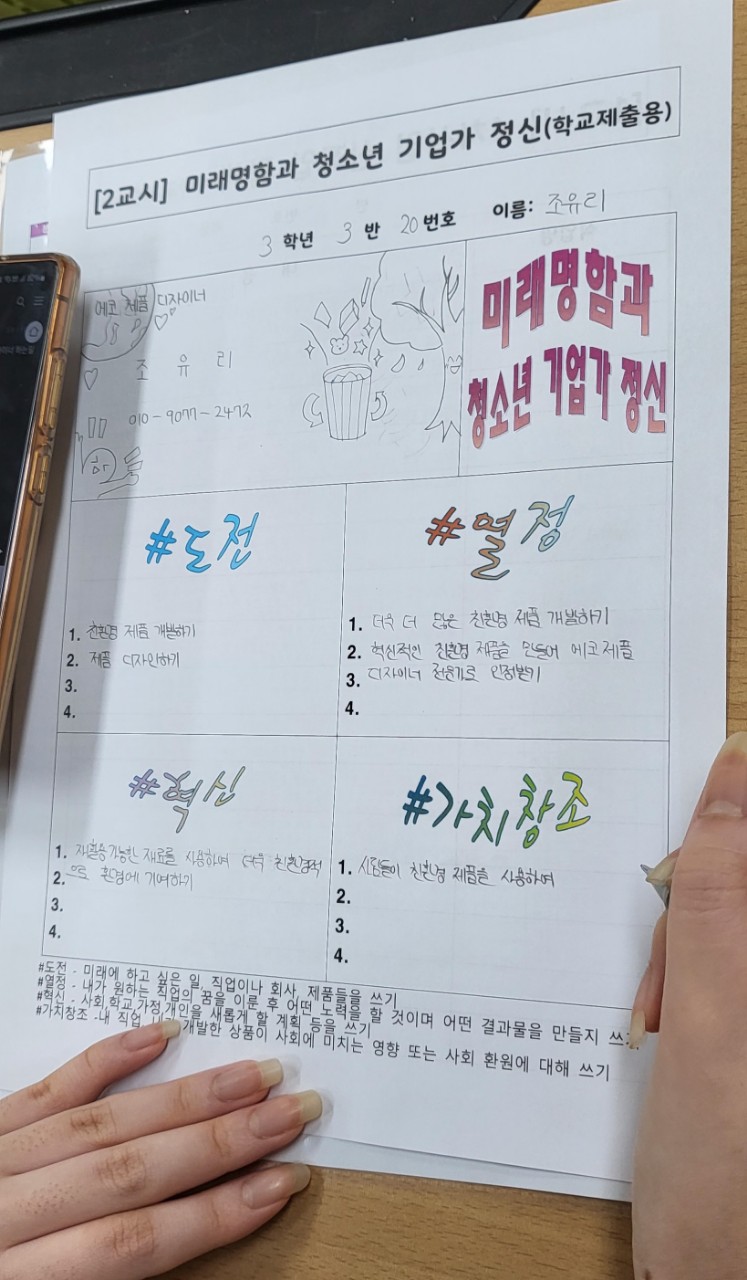 [2교시] 미래명함과 청소년 기업가 정신(학교제출용)
3 학년 3 반 20 번호 이름: 조유리
에코 제품 디자이너
조 유 리
010-9077-2472
미래명함과
청소년 기업가 정신
#도전
1. 친환경 제품 개발하기
2. 제품 디자인하기
3.
4.
#열정
1. 더욱 더 많은 친환경 제품 개발하기
2. 혁신적인 친환경 제품을 만들어 에코 제품
3. 디자이너 전문가로 인정받기
4.
#혁신
1. 재활용가능한 재료를 사용하여 더욱 친환경적
2. 으로 환경에 기여하기
3.
4.
#가치창조
1. 사람들이 친환경 제품을 사용하여
2.
3.
4.
#도전 - 미래에 하고 싶은 일, 직업이나 회사, 제품들을 쓰기
#열정 - 내가 원하는 직업의 꿈을 이룬 후 어떤 노력을 할 것이며 어떤 결과물을 만들지 쓰
#혁신 - 사회,학교,가정,개인을 새롭게 할 계획 등을 쓰기
#가치창조 -내 직업, 개발한 상품이 사회에 미치는 영향 또는 사회 환원에 대해 쓰기